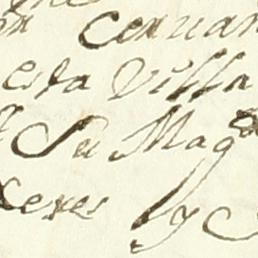 Ceruan
esta Villa
Su Magd
xeres y